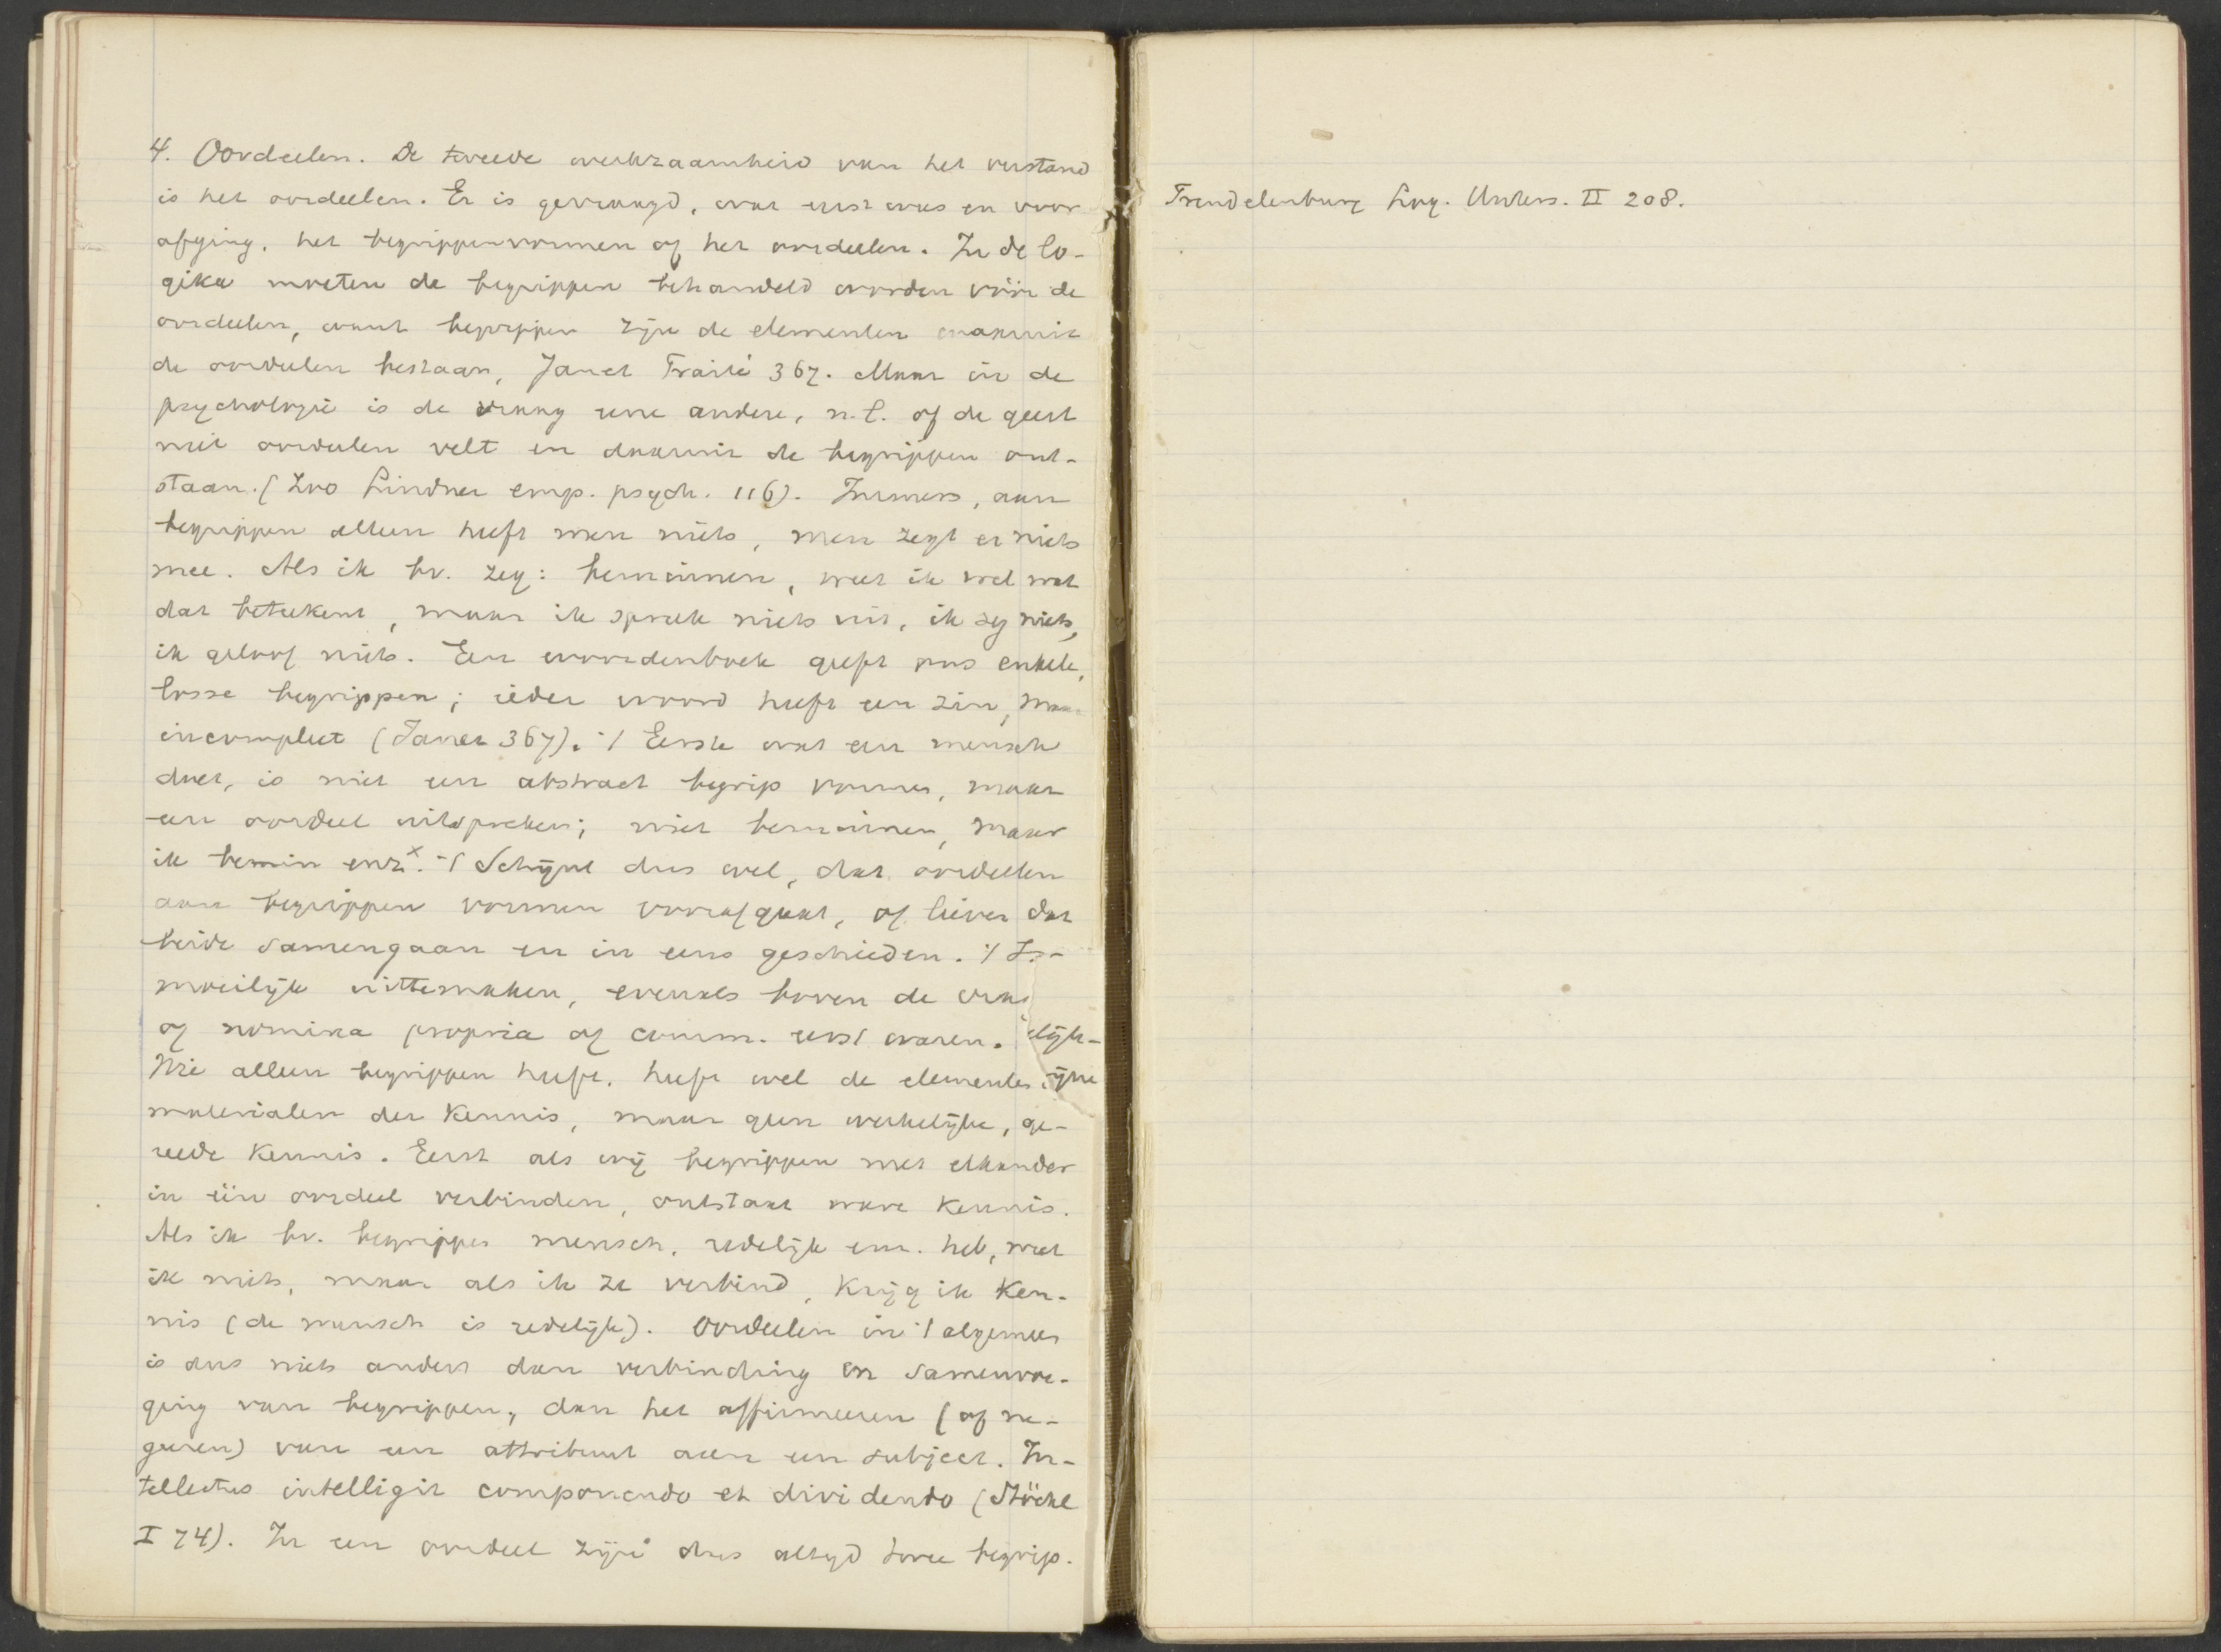 4. Oordeelen. De tweede werkzaamheid van het verstand
is het oordeelen. Er is gevraagd, wat eerst was en voor
afging, het begrippenvormen of het oordeelen. In de lo-
gika moeten de begrippen behandeld worden vóór de
oordeelen, want begrippen zijn de elementen waaruit
de oordeelen bestaan, Janet Traité 367. Maar in de
psychologie is de vraag eene andere, n.l. of de geest
niet oordeelen velt en daaruit de begrippen ont-
staan. (Zoo Lindner emp. psych. 116). Immers, aan
begrippen alleen heeft men niets, men zegt er niets
mee. Als ik bv. zeg: beminnen, weet ik wel wat
dat beteekent, maar ik spreek niets uit, ik zeg niets,
ik geloof niets. Een woordenboek geeft ons enkele,
losse begrippen; ieder woord heeft een zin, maar
incompleet (Janet 367). 't Eerste wat een mensch
doet, is niet een abstract begrip vormen, maar
een oordeel uitspreken; niet beminnen, maar
ik bemin enz.x 't Schijnt dus wel, dat oordeelen
aan begrippen vormen voorafgaat, of liever dat
beide samengaan en in eens geschieden. 't Is
moeilijk uittemaken, evenals boven de
of nomina propria of comm. eerst waren. elijk-
Wie alleen begrippen heeft, heeft wel de elementen
materialen der kennis, maar geen werkelijke, ge-
reede kennis. Eerst als wij begrippen met elkander
in één oordeel verbinden, ontstaat ware kennis.
Als ik bv. begrippen mensch, redelijk enz. heb, weet
ik niets, maar als ik ze verbind, krijg ik ken-
nis (de mensch is redelijk). Oordeelen in 't algemeen
is dus niets anders dan verbinding en samenvoe-
ging van begrippen, dan het affirmeeren (of ne-
geeren) van een attribuut aan een subject. In-
tellectus intelligit componendo et dividendo (Stöckl
I 74). In een oordeel zijn dus altijd twee begrip.
Trendelenburg Log. Unters. II 208.